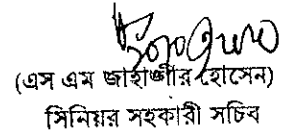 (এস এম জাহাঙ্গীর হোসেন)
সিনিয়র সহকারী সচিব